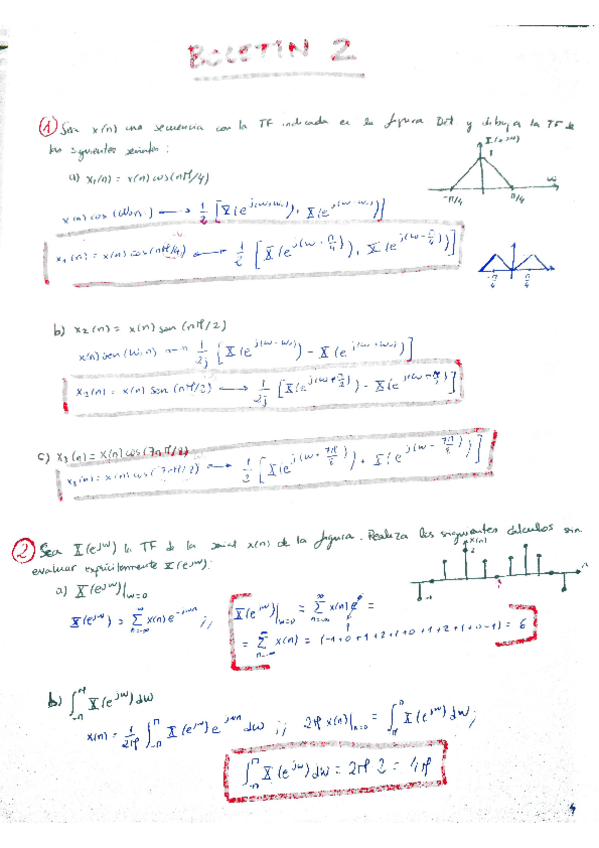 BOLETIN 2
① Sea x(n) una secuencia con la TF indicada en la figura Dit y dibuja la TF de
las siguientes señales:
X(e^jω)
1
ω
-π/4 π/4
a) x₁(n) = x(n) cos(nπ/4)
x(n) cos(ω₀n) ⟷ 1/2 [X(e^j(ω+ω₀)) + X(e^j(ω-ω₀))]
x₁(n) = x(n) cos(nπ/4) ⟷ 1/2 [X(e^j(ω+π/4)) + X(e^j(ω-π/4))]
-π/4 π/4
b) x₂(n) = x(n) sen(nπ/2)
x(n) sen(ω₀n) ⟷ 1/2j [X(e^j(ω-ω₀)) - X(e^j(ω+ω₀))]
x₂(n) = x(n) sen(nπ/2) ⟶ 1/2j [X(e^j(ω+π/2)) - X(e^j(ω+π/2))]
c) x₃(n) = x(n) cos(7nπ/2)
x₃(n) = x(n) cos(7nπ/2) ⟷ 1/2 [X(e^j(ω+7π/2)) + X(e^j(ω-7π/2))]
② Sea X(e^jω) la TF de la señal x(n) de la figura. Realiza los siguientes cálculos sin
evaluar explícitamente X(e^jω):
x(n)
2
n
-1
-1
a) X(e^jω)|ω=0
X(e^jω) = Σ_{n=-∞}^{∞} x(n) e^-jωn ;; X(e^jω)|ω=0 = Σ_{n=-∞}^{∞} x(n) e⁰ =
1
= Σ_{n=-∞}^{∞} x(n) = (-1+0+1+2+1+0+1+2+1+0-1) = 6
b) ∫_{-π}^{π} X(e^jω) dω
x(n) = 1/2π ∫_{-π}^{π} X(e^jω) e^jωn dω ;; 2π x(n)|n=0 = ∫_{-π}^{π} X(e^jω) dω;
∫_{-π}^{π} X(e^jω) dω = 2π 2 = 4π